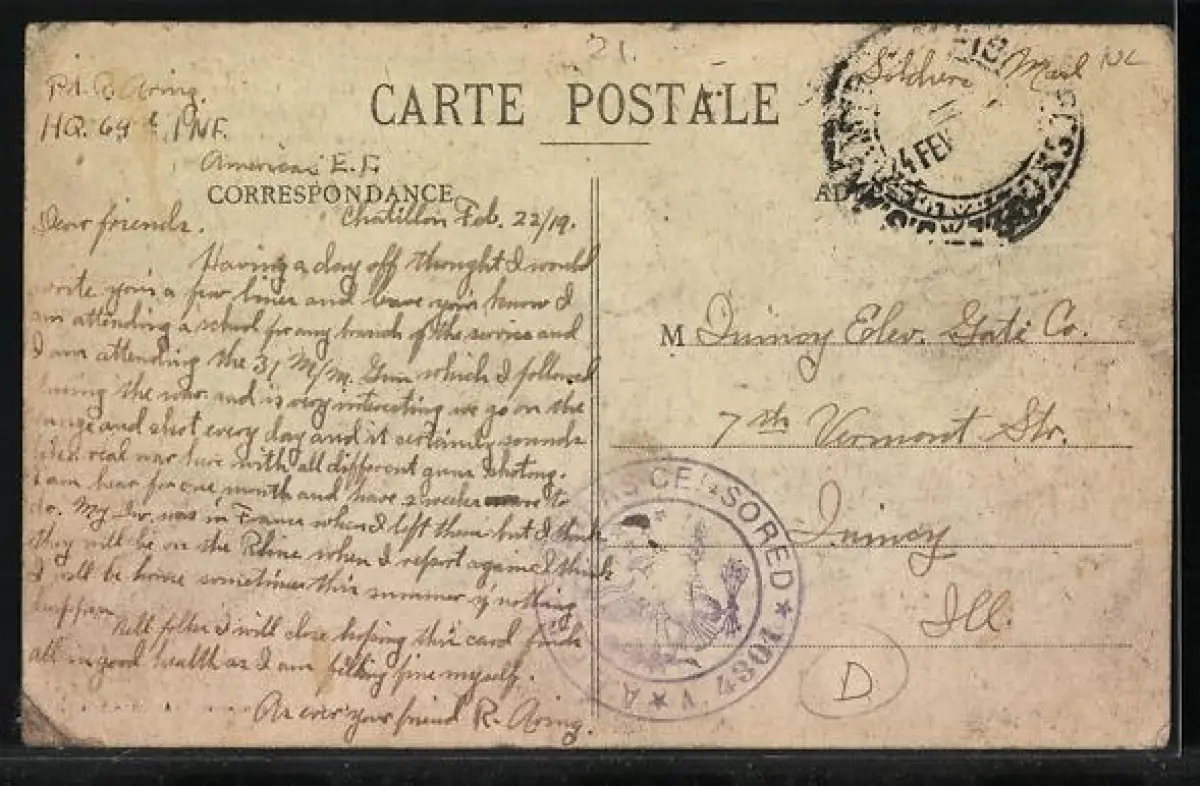 21.
Soldiers Mail
Pvt. R. Aring.
HQ. 64th INF.
American E. F.
CARTE POSTALE
CORRESPONDANCE
AD
24 FEB
Chatillon Feb. 22/19.
Dear friends.
Having a day off thought I would
write you a few lines and leave you know I
am attending a school for any branch of the service and
I am attending the 37 M/M. Gun which I followed
during the war and is very interesting we go on the
range and shot every day and it certainly sounds
like real war here with all different guns shoting.
I am hear for one month and have 2 weeks more to
do. My Div. was in France when I left them but I think
they will be on the Rhine when I report again I think
I will be home sometimes this summer if nothing
happen
Well fellers I will close hoping this card finds
all in good health as I am felling fine myself.
As ever your friend R. Aring.
M Quincy Elev. Gate Co.
7th Vermont Str.
Quincy
Ill.
AS CENSORED
4304
D